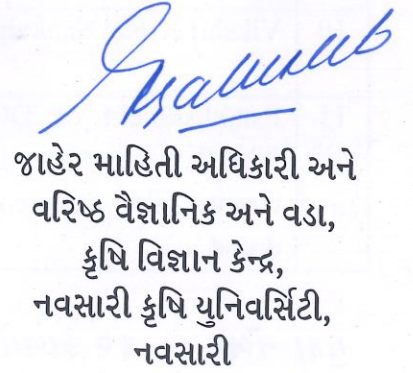 જાહેર માહિતી અધિકારી અને
વરિષ્ઠ વૈજ્ઞાનિક અને વડા,
કૃષિ વિજ્ઞાન કેન્દ્ર,
નવસારી કૃષિ યુનિવર્સિટી,
નવસારી